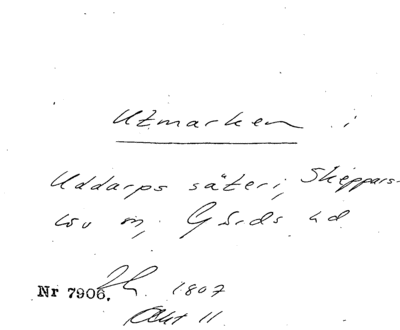 Utmarken i
Uddarps säteri, Skeppars-
löv m, Gärds hd
Nr 7906. 1807
Akt 11